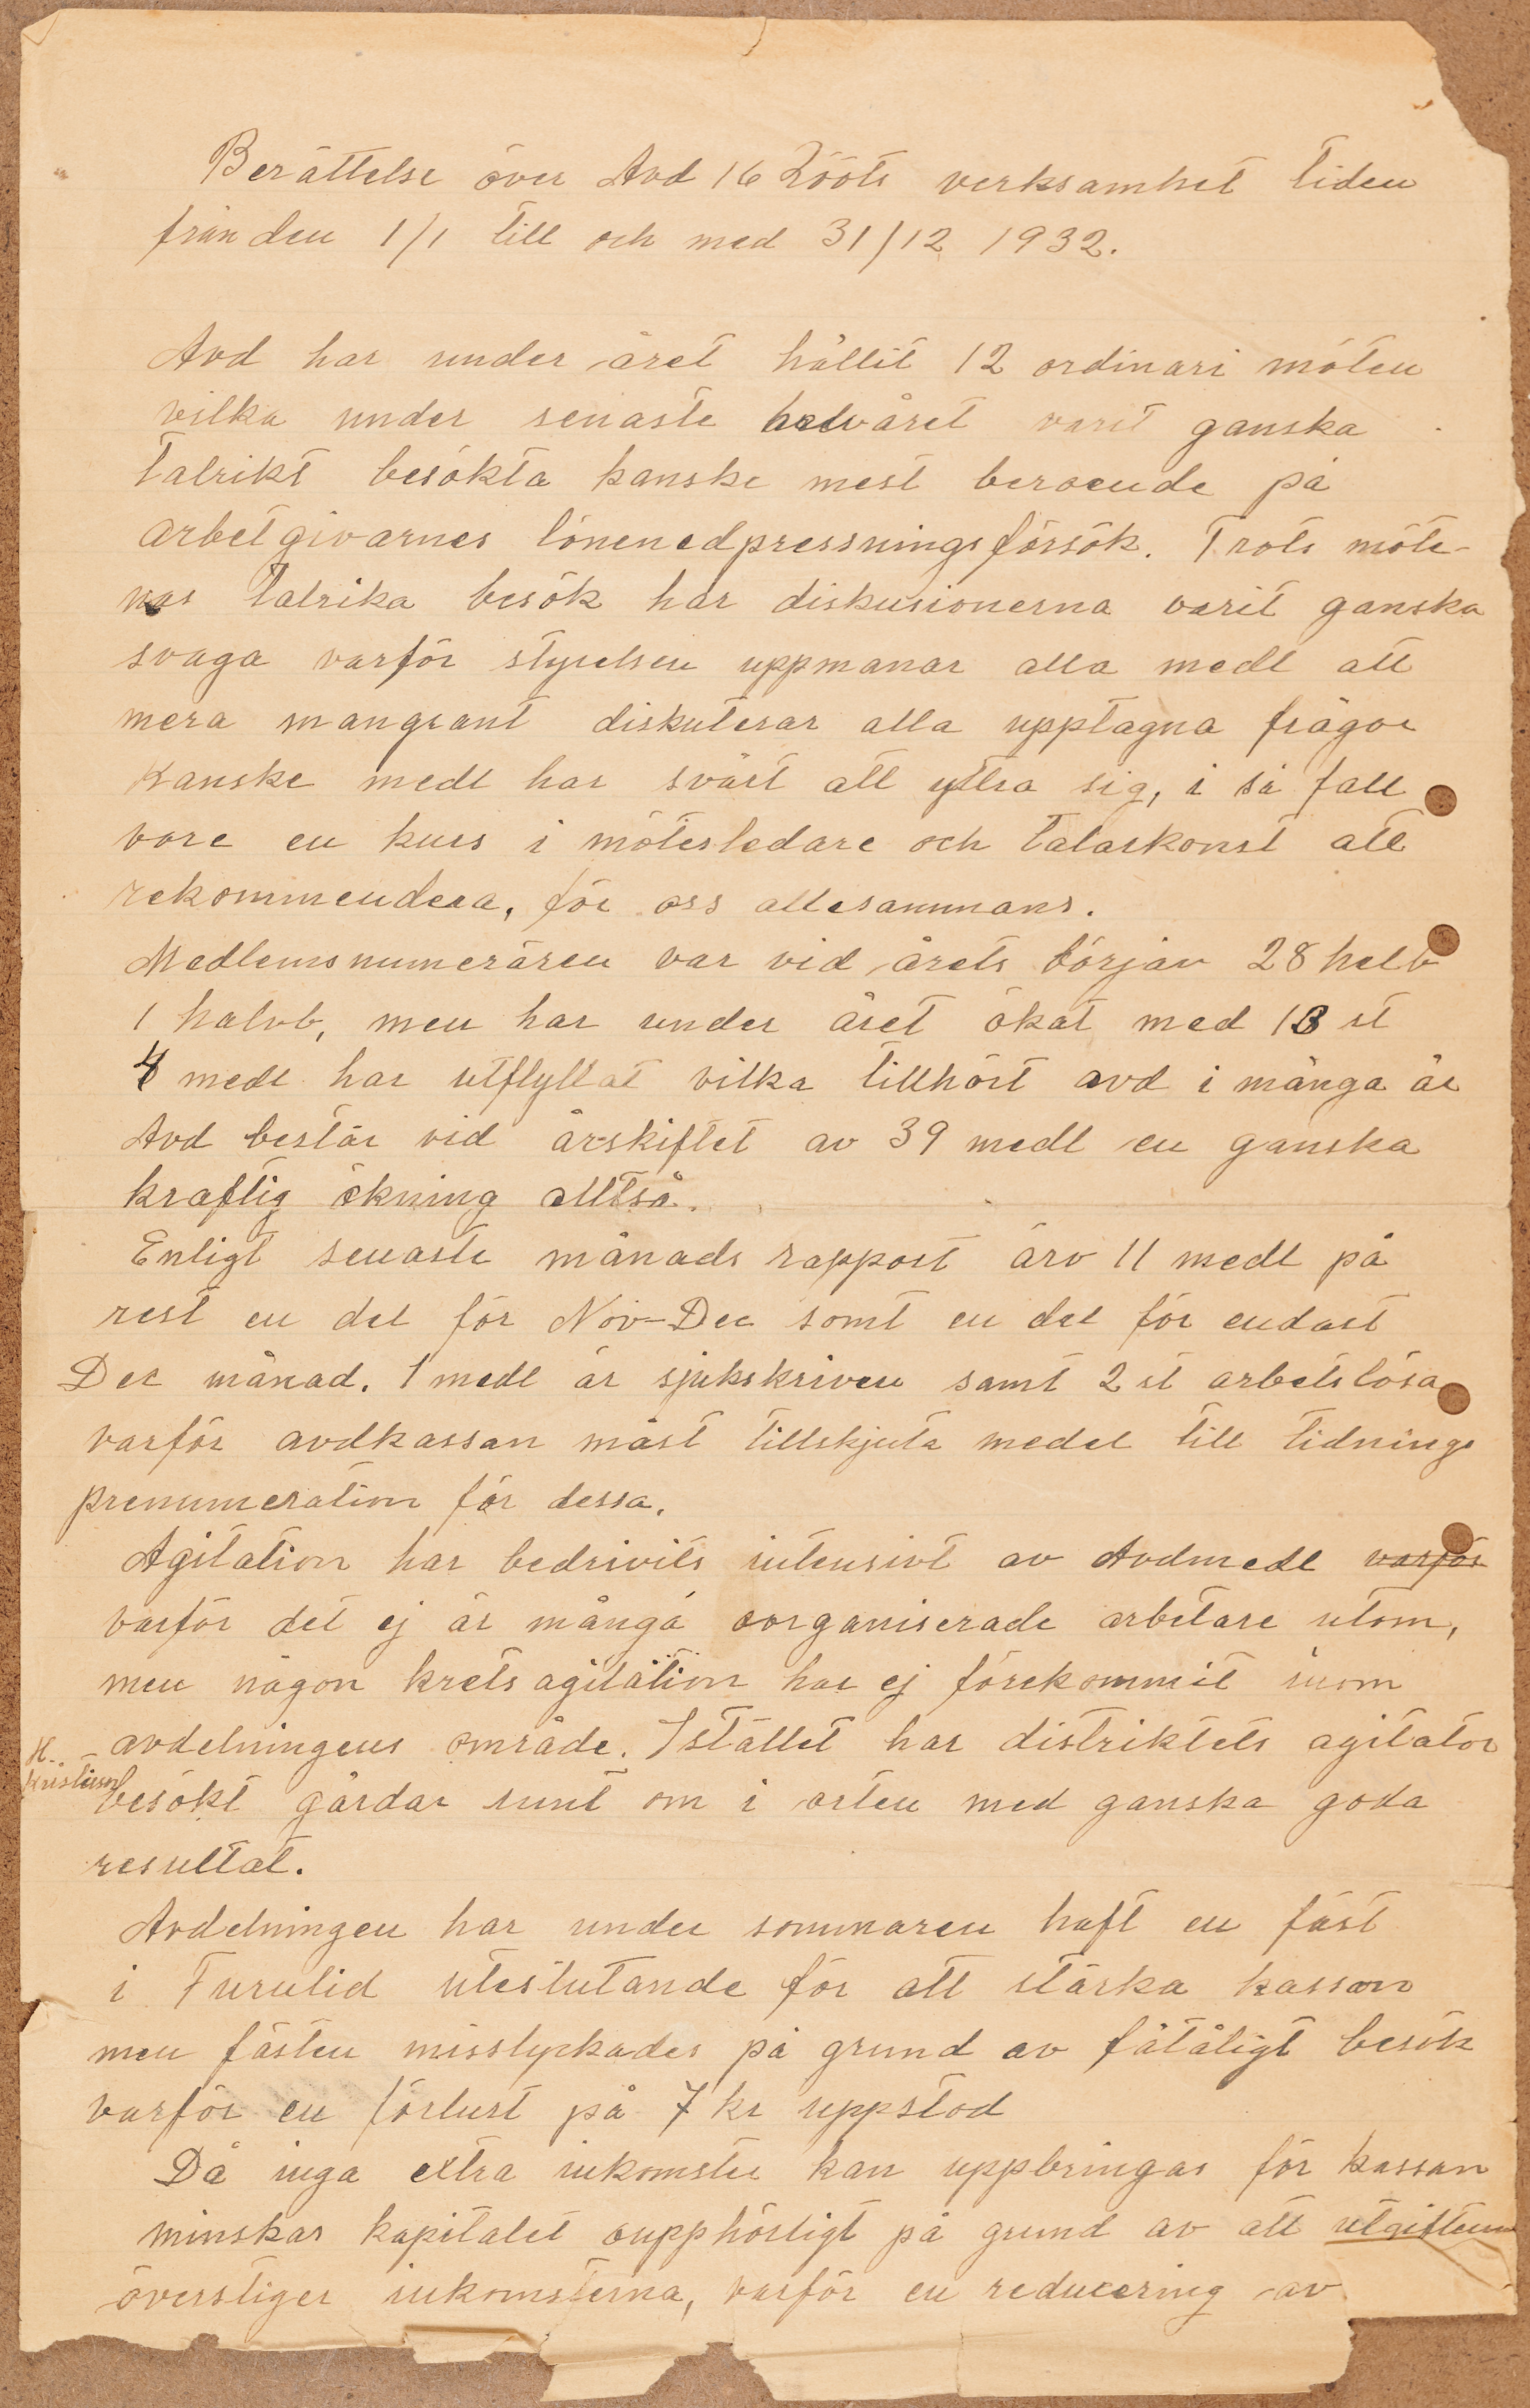 Berättelse över Avd 16 Rööts verksamhet tiden
från den 1/1 till och med 31/12 1932.
Avd har under året hållit 12 ordinari möten
vilka under senaste halvåret varit ganska
talrikt besökta kanske mest beroende på
arbetgivarnes lönenedpressningsförsök. Trots möte-
nas talrika besök har diskusionerna varit ganska
svaga varför styrelsen uppmanar alla medl att
mera mangrant diskuterar alla upptagna frågor
Kanske medl har svårt att yttra sig, i så fall
vore en kurs i mötesledare och talarkonst att
rekommendera, för oss allesammans.
Medlemsnumerären var vid årets början 28 helb
1 halvb, men har under året ökat med 13 st
4 medl har utflyttat vilka tillhört avd i många år
Avd består vid årskiftet av 39 medl en ganska
kraftig ökning alltså.
Enligt senaste månads rapport äro 11 medl på
rest en del för Nov-Dec samt en del för endast
Dec månad. 1 medl är sjukskriven samt 2 st arbetslösa
varför avdkassan måst tillskjuta medel till tidnings
prenumeration för dessa.
Agitation har bedrivits intensivt av Avdmedl varför
varför det ej är många oorganiserade arbetare utom,
men någon kretsagitation har ej förekommit inom
avdelningens område. Istället har distriktets agitator
H. Kristiansson
besökt gårdar runt om i orten med ganska goda
resultat.
Avdelningen har under sommaren haft en fäst
i Furulid uteslutande för att stärka kassan
men fästen misslyckades på grund av fåtåligt besök
varför en förlust på 7 kr uppstod
Då inga extra inkomster kan uppbringas för kassan
minskar kapitalet oupphörligt på grund av att utgifterna
överstiger inkomsterna, varför en reducering av